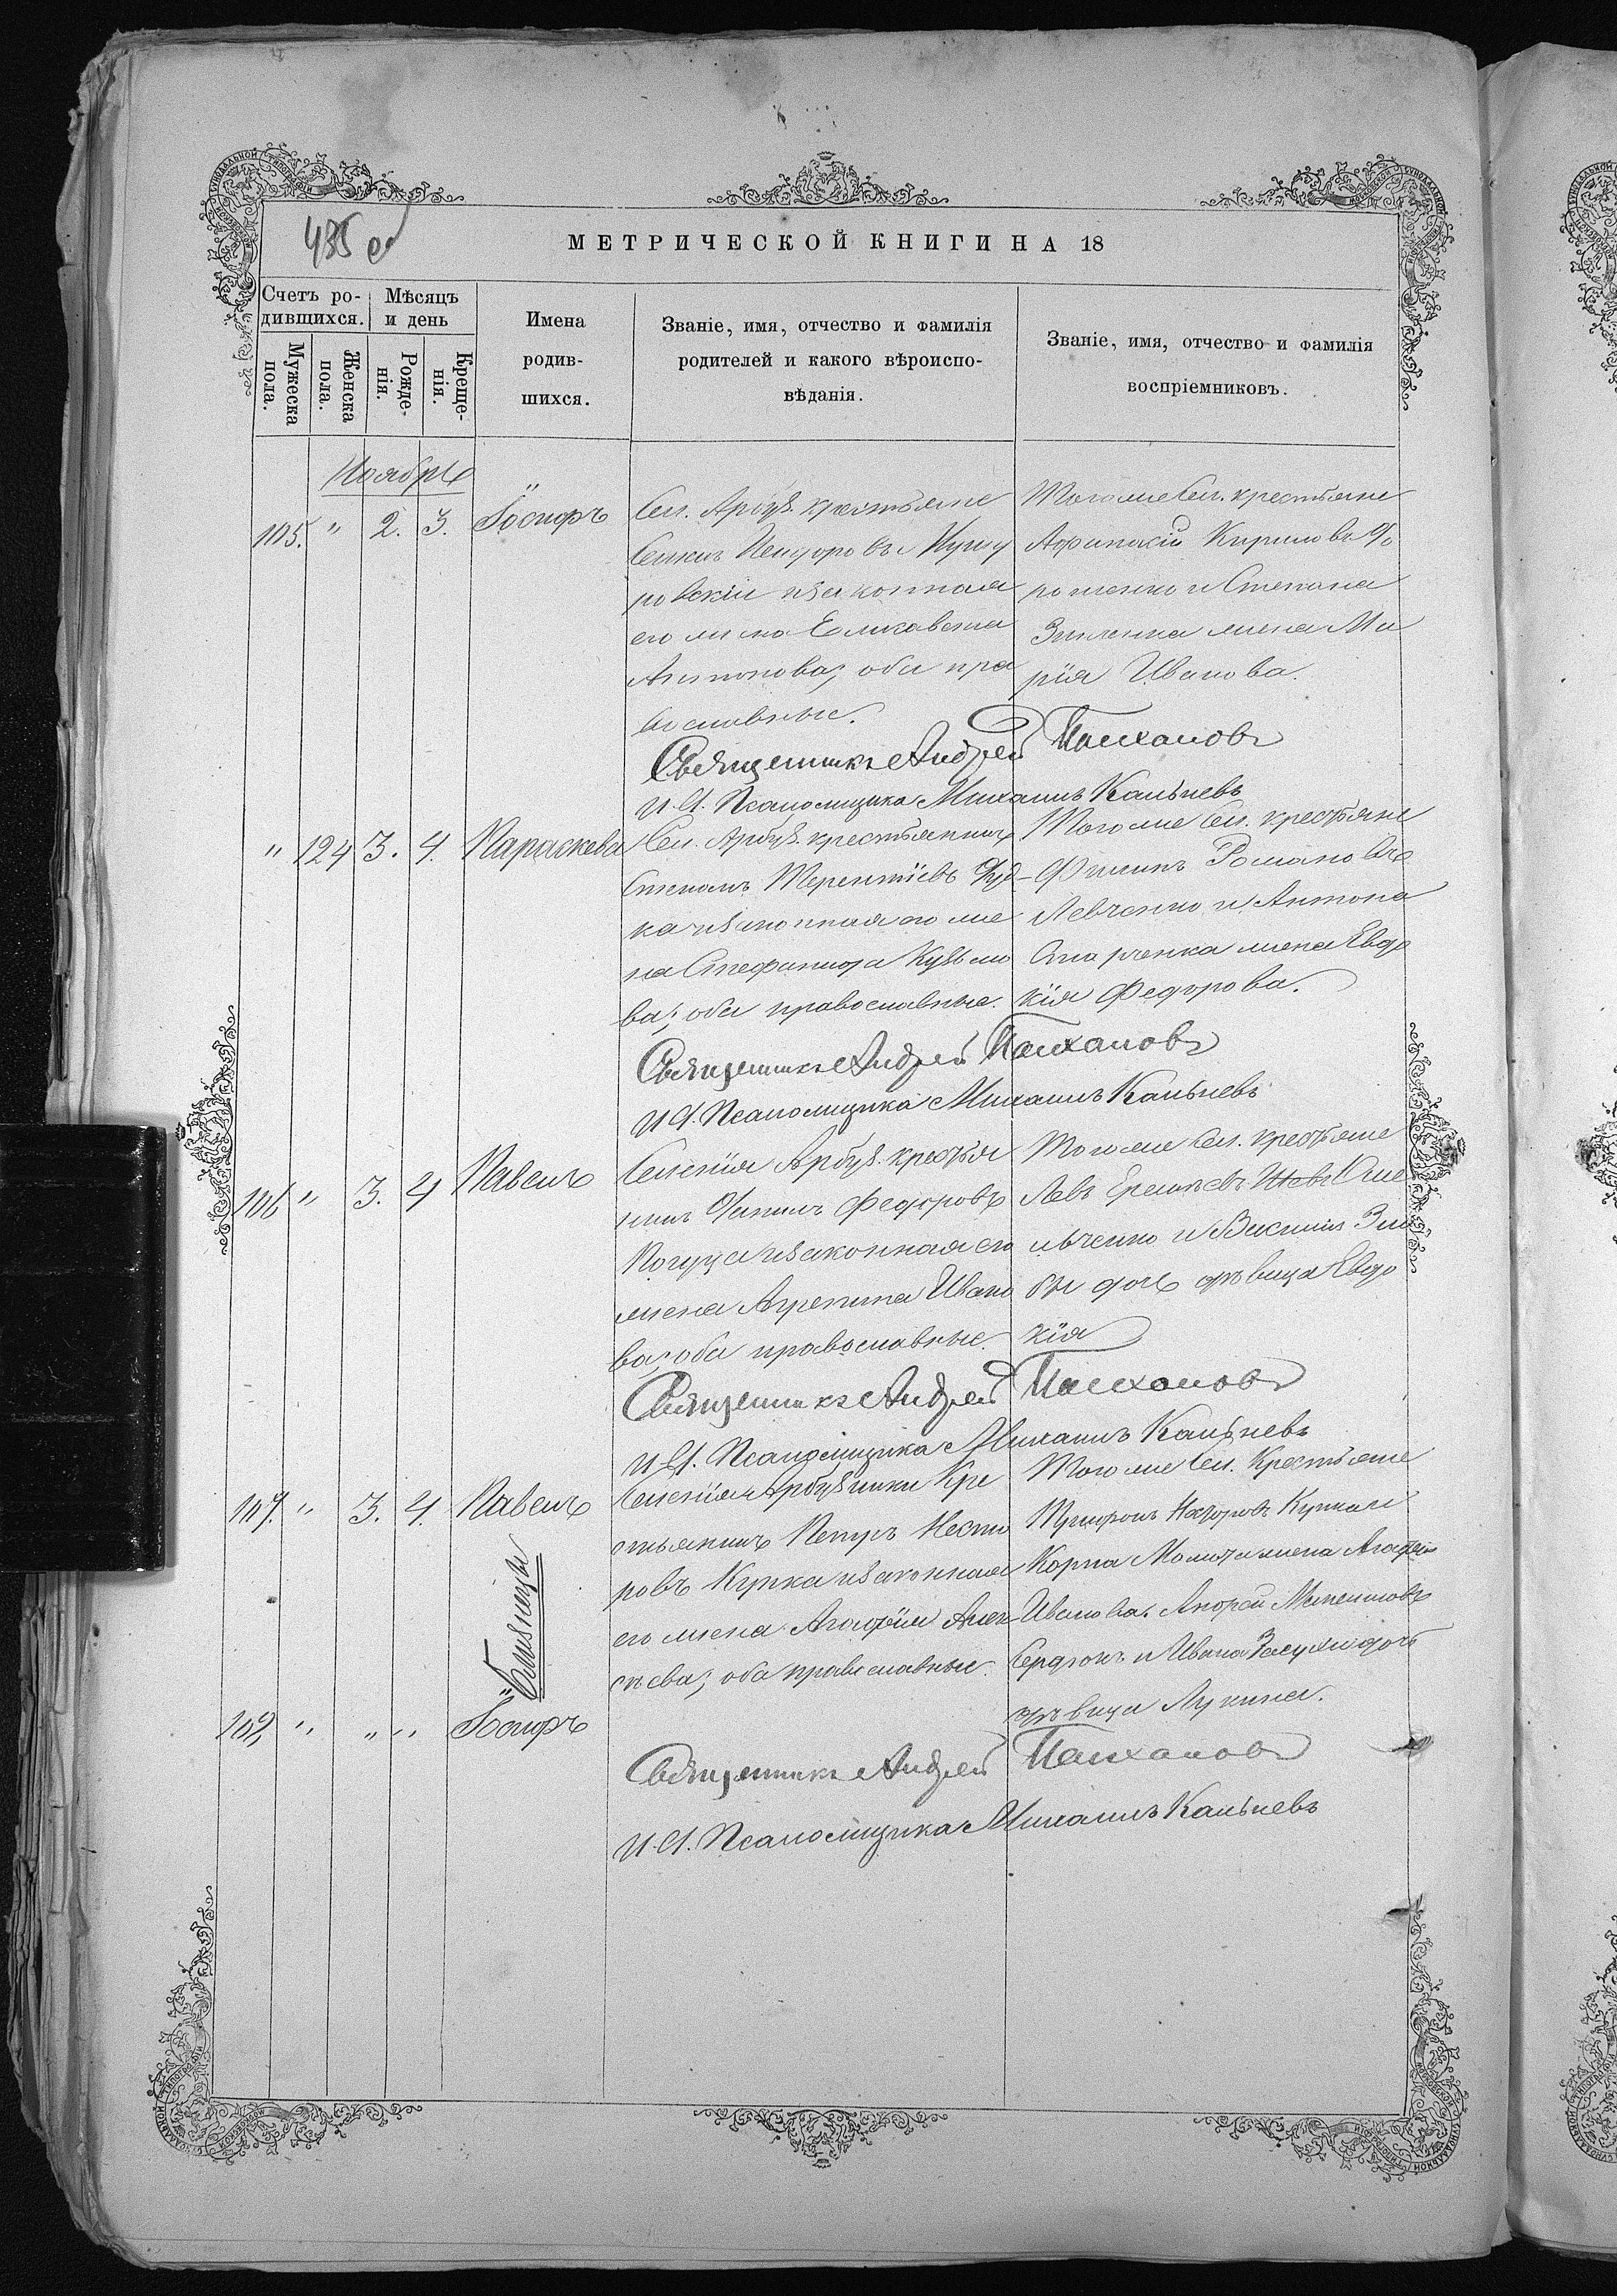 435 об
МЕТРИЧЕСКОЙ КНИГИ НА 18
Счетъ ро-
дившихся.
Мѣсяцъ
и день
Мужеска
пола.
Женска
пола.
Рожде-
нія.
Креще-
нія.
Имена
родив-
шихся.
Званіе, имя, отчество и фамилія
родителей и какого вѣроиспо-
вѣданія.
Званіе, имя, отчество и фамилія
воспріемниковъ.
Ноябрь
105. " 2. 3. Іосифъ
Сел. Арбуз. крестьяне
Ѳеодоровъ
и законная
его жена Елисавета
Антонова; оба пра
вославные.
Тогоже Сел. крестьяне
Афанасій Кириловъ
и Степана
жена Ма
рія Иванова.
Священникъ Андрей Палхановъ
И. д. Псаломщика Михаилъ Кальневъ
" 124 3. 4. Параскева
Сел. Арбуз. крестьянинъ
Степанъ Терентіевъ Дуд-
ка и законная его же
на Стефанида Кузьмо
ва; оба православные.
Тогоже Сел. крестьяне
Филипъ Романовъ
Левченко и Антона
жена Евдо
кія Федорова.
Священникъ Андрей Палхановъ
И. д. Псаломщика Михаилъ Кальневъ
106 " 3. 4 Павелъ
Селенія Арбуз. крестья
нинъ Федоровъ
и законная его
жена Агрепина Ивано
ва; оба православные.
Тогоже Сел. крестьяне
Левъ
и Василія
дочь дѣвица Евдо
кія
Священникъ Андрей Палхановъ
И. д. Псаломщика Михаилъ Кальневъ
107. " 3. 4. Павелъ
Близнецы
Селенія Арбузинки Кре
стьянинъ Петръ Несто
ровъ и законная
его жена Агафія Алек
сѣева; оба православные.
Тогоже Сел. Крестьяне
Трифонъ
жена Агафія
Иванова. Андрей
и Ивана дочь
дѣвица Лукина.
108, " " " Іосифъ
Священникъ Андрей Палхановъ
И. д. Псаломщика Михаилъ Кальневъ